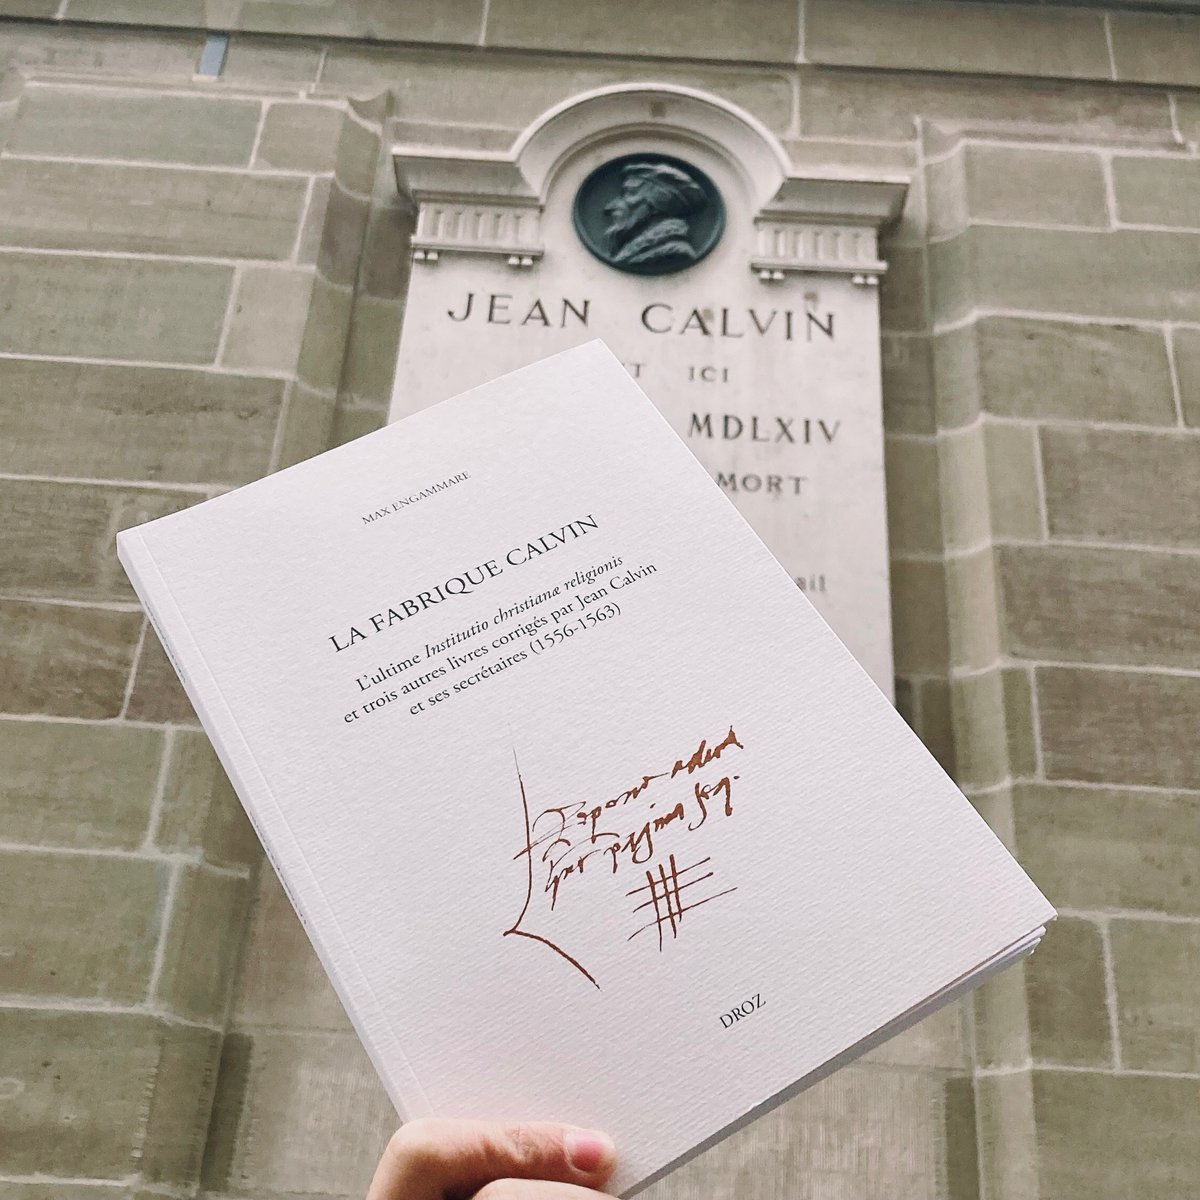 JEAN CALVIN
T ICI
MDLXIV
MORT
ail
MAX ENGAMMARE
LA FABRIQUE CALVIN
L'ultime Institutio christianæ religionis
et trois autres livres corrigés par Jean Calvin
et ses secrétaires (1556-1563)
DROZ